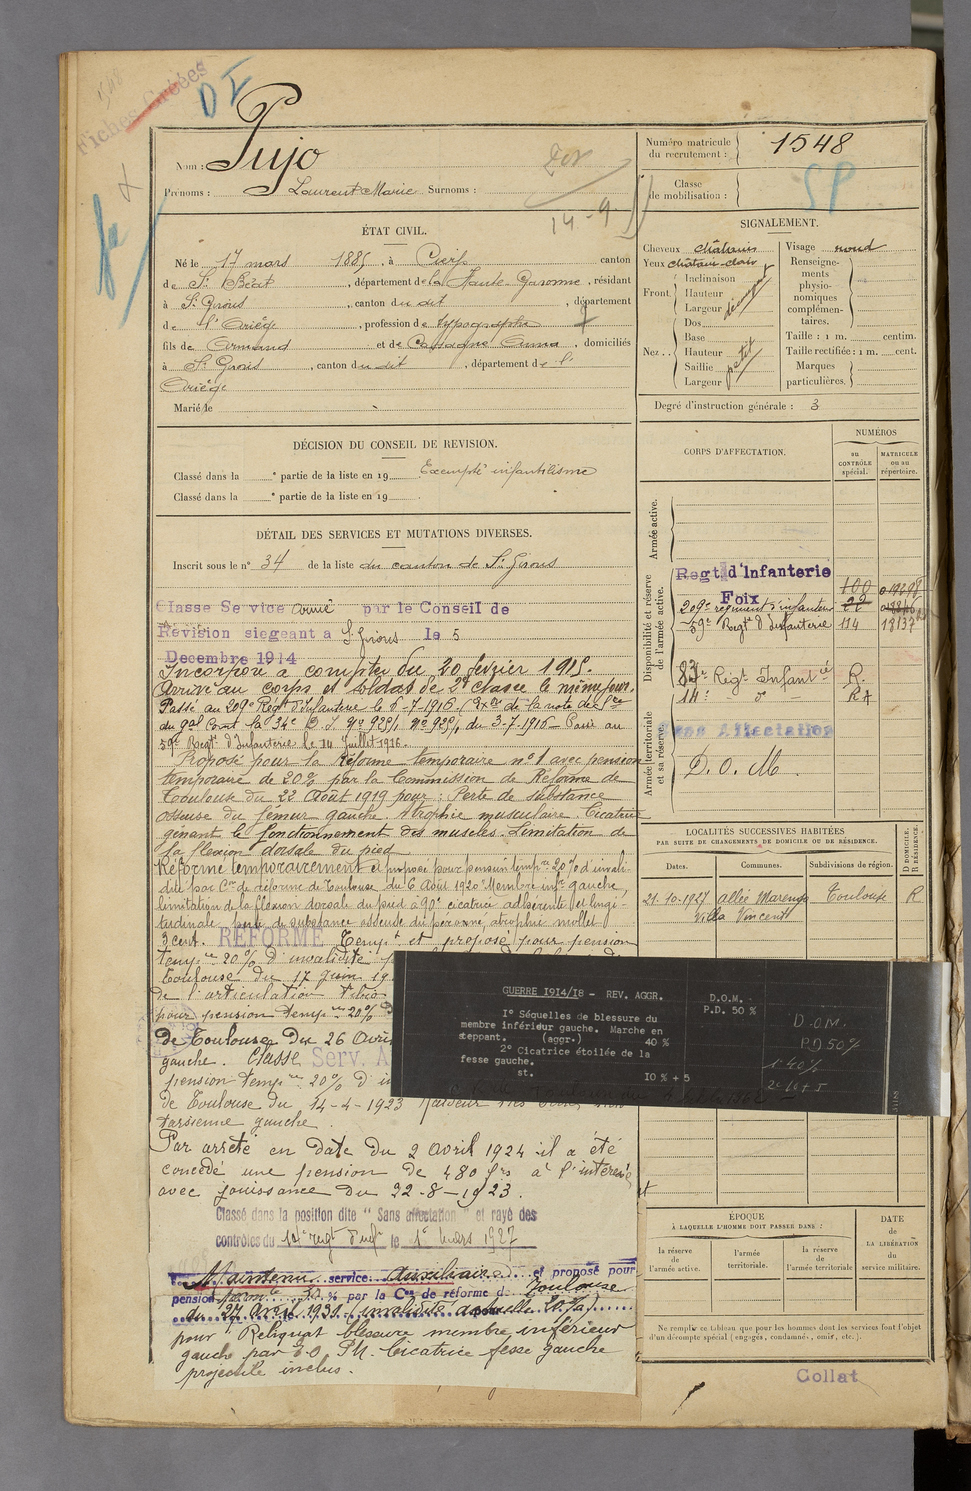 Fiches Créées
D I
Nom : Pujo
Prénoms : Laurent Marie Surnoms :
14-9
Numéro matricule du recrutement : 1548
Classe de mobilisation :
SP
ÉTAT CIVIL.
Né le 17 mars 1885, à Cierp canton
de St Béat, département de la Haute Garonne, résidant
à St Girons, canton du dit, département
de l'Ariège, profession de typographe
fils de Armand et de Castagné Anna, domiciliés
à St Girons, canton du dit, département de l'
Ariège
Marié le
SIGNALEMENT.
Cheveux châtains
Yeux châtain-clair
Front. Inclinaison
Hauteur
Largeur
Nez. Dos
Base
Hauteur
Saillie petit
Largeur
Visage rond
Renseignements physionomiques complémentaires.
Taille : 1 m. centim.
Taille rectifiée : 1 m. cent.
Marques particulières.
Degré d'instruction générale : 3
DÉCISION DU CONSEIL DE REVISION.
Classé dans la e partie de la liste en 19 Exempté infantilisme
Classé dans la e partie de la liste en 19
DÉTAIL DES SERVICES ET MUTATIONS DIVERSES.
Inscrit sous le n° 34 de la liste du canton de St Girons
Classe Service armé par le Conseil de
Révision siegeant a St Girons le 5
Decembre 1914
Incorporé à compter du 20 février 1915.
Arrivé au corps et soldat de 2e classe le même jour.
Passé au 209e Régt d'Infanterie le 6-7-1916 (Exon de la note de Sce
du Gal Comt la 34e D.I. No 925/1, No 925/1, du 3-7-1916 Passé au
59e Regt d'Infanterie le 14 Juillet 1916.
Proposé pour la Réforme temporaire n°1 avec pension
temporaire de 20% par la Commission de Réforme de
Toulouse du 22 Août 1919 pour : Perte de substance
osseuse du fémur gauche. Atrophie musculaire. Cicatrice
gênant le fonctionnement des muscles. Limitation de
la flexion dorsale du pied
Réformé temporairement et proposé pour pension tempre 20% d'invali-
dité par Con de réforme de Toulouse du 6 Août 1920 "Membre infr gauche,
limitation de la flexion dorsale du pied à 90° cicatrice adhérente et longi-
tudinale, perte de substance osseuse du péronné, atrophie mollet
3 cent. REFORMÉ Tempt et proposé pour pension
tempre 20% d'invalidité
Toulouse du 17 juin 19
de l'articulation tibio
pour pension tempre 20%
de Toulouse du 26 Avri
gauche. Classé Serv. A
pension tempre 20% d'in
de Toulouse du 14-4-1923
tarsienne gauche.
Par arrêté en date du 2 Avril 1924 il a été
concédé une pension de 480 frs à l'intéressé
avec jouissance du 22-8-1923.
Classé dans la position dite "Sans affectation" et rayé des
contrôles du 14e regt d'infie le 1er Mars 1927
Maintenu service Auxiliaire et proposé pour
pension perm % par la Con de réforme d. Toulouse
du 27 Avril 1931 (invalidité actuelle
pour Reliquat blessure membre inférieur
gauche par E.O. Ph. Cicatrice fesse gauche
projectile inclus.
CORPS D'AFFECTATION.
NUMÉROS
au CONTRÔLE spécial.
MATRICULE ou au répertoire.
Armée active.
Disponibilité et réserve de l'armée active.
Regt d'Infanterie
Foix 100
209e régiment d'infanterie 22
59e Regt d'Infanterie 114 18137
83e Regt Infantie R.
14e do - R
Armée territoriale et sa réserve.
Sans Affectation
D. O. M.
LOCALITÉS SUCCESSIVES HABITÉES
PAR SUITE DE CHANGEMENTS DE DOMICILE OU DE RÉSIDENCE.
Dates. Communes. Subdivisions de région.
D DOMICILE. R RÉSIDENCE.
21-10-1927 Allée Marengo Toulouse R
Villa Vincent
GUERRE 1914/18 - REV. AGGR.
D.O.M.
P.D. 50 %
1° Séquelles de blessure du
membre inférieur gauche. Marche en
steppant. (aggr.) 40 %
2° Cicatrice étoilée de la
fesse gauche.
st. 10 % + 5
D.O.M.
P.D 50%
1° 40%
2° 10+5
ÉPOQUE
À LAQUELLE L'HOMME DOIT PASSER DANS :
la réserve de l'armée active.
l'armée territoriale.
la réserve de l'armée territoriale
DATE de LA LIBÉRATION du service militaire.
Ne remplir ce tableau que pour les hommes dont les services font l'objet
d'un décompte spécial (engagés, condamnés, omis, etc.).
Collat